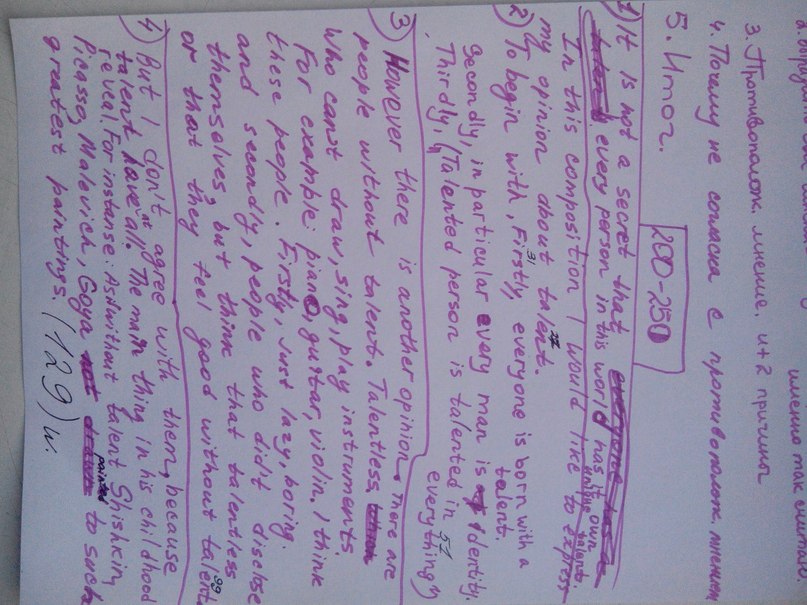 именно так считаю.
3. Противополож. мнение. и+2 причины
4. Почему не согласна с противополож. мнением
5. Итог.
200-250
1) It is not a secret that
every person in this world has it own
unique talent.
In this composition I would like to express
my opinion about talent.
31
2) To begin with, Firstly, everyone is born with a
talent.
Secondly, in particular every man is identity.
Thirdly, (Talented person is talented in
everything")
51
3) However there is another opinion. There are
people without talent. Talentless,
who can't draw, sing, play instruments
For example: piano, guitar, violin, I think
these people. Firstly, just lazy, boring.
and secondly, people who did't disclose
themselves, but think that talentless
or that they feel good without talent
99
4) But I don't agree with them, because
talent have all. The main thing in his childhood
reveal. For instance: As without talent Shishkin,
Picasso, Malevich, Goya painted to such
greatest paintings. (129) w.